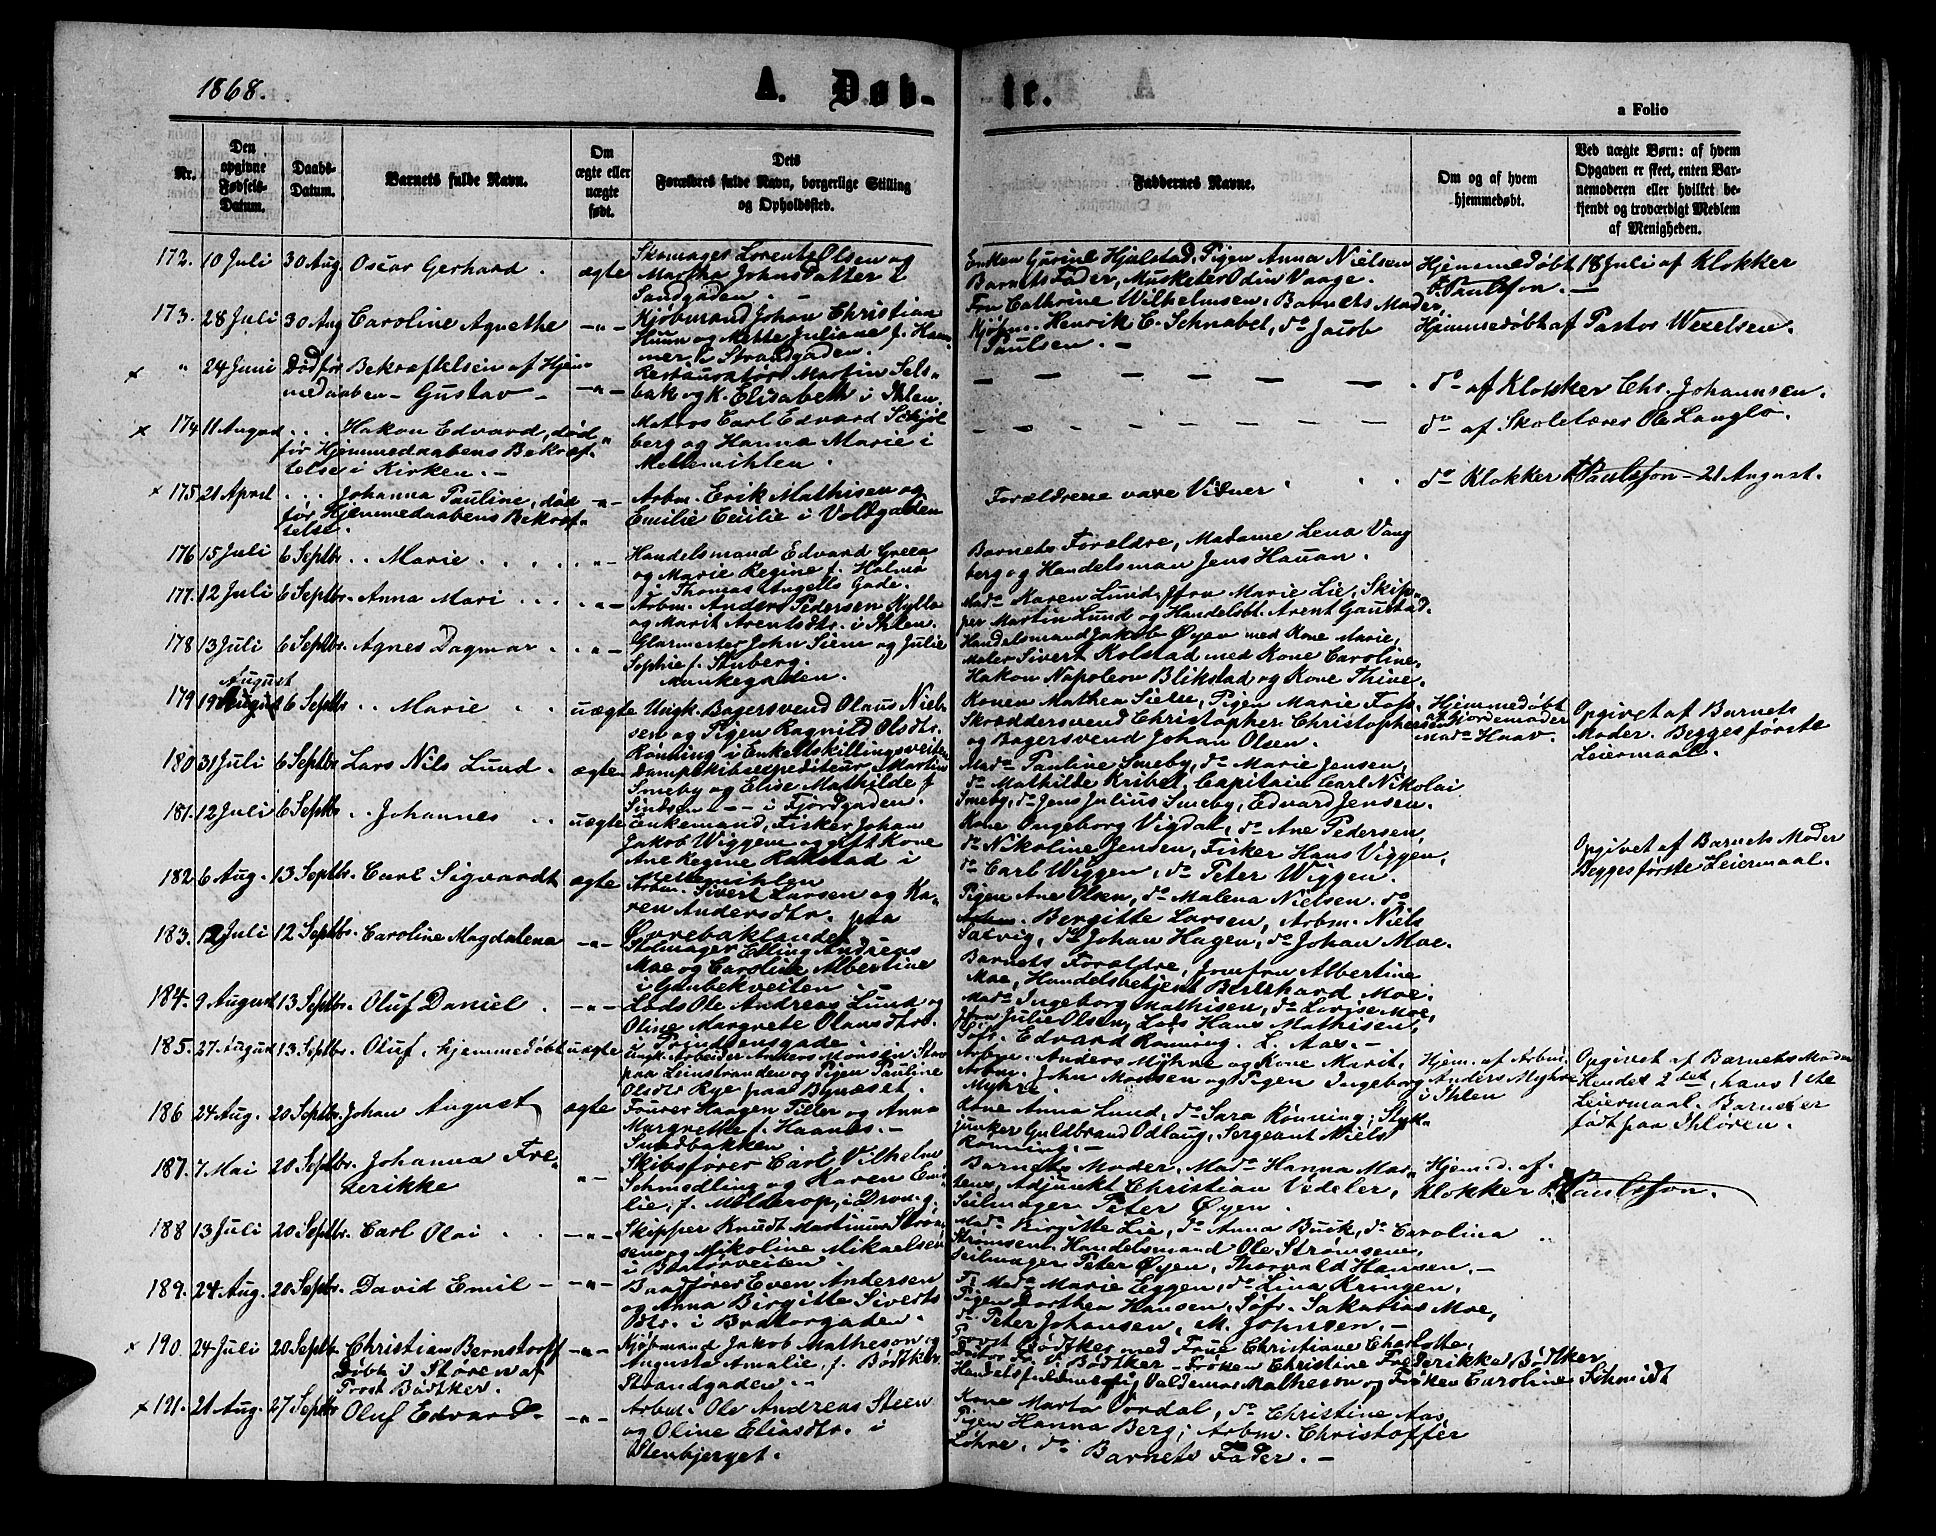 1868.
A. Døb-
te.
a Folio
Nr.
Den opgivne Fødsels-Datum.
Daabs-Datum.
Barnets fulde Navn.
Om ægte eller uægte født.
Dets Forældres fulde Navn, borgerlige Stilling og Opholdssted.
Faddernes Navne.
Om og af hvem hjemmedøbt.
Ved uægte Børn: af hvem Opgaven er skeet, enten Barnemoderen eller hvilket bekjendt og troværdigt Medlem af Menigheden.
172. 10 Juli 30 Aug. Oscar Gerhard . ægte
Skomager Lorents Olsen og
Martha Johns Datter i
Sandgaden.
Enken Gurine Hjalstad, Pigen Anna Nielsen
Barnets Fader, Musketer Odin Vaage.
Hjemmedøbt 18 Juli af Klokker
P. Paulsson. —
173. 28 Juli 30 Aug Caroline Agnethe —"—
Kjøbmand Johan Christian
Huun og Mette Juliane f. Ham-
mer i Strandgaden.
Fru Cathrine Wilhelmsen, Barnets Moder,
Kjøbm. Henrik C. Schnabel, do Jacob
Paulsen. —
Hjemmedøbt af Pastor Wexelsen.
x " 24 Juni Død før Bekræftelsen af Hjem-
medaaben — Gustav — —"—
Restauratør Martin Sels-
bak og K. Elisabeth i Ihlen.
do af Klokker Chr. Johannsen.
x 174 11 August . . . Hakon Edvard, død "
før Hjemmedaabens Bekræf-
telse i Kirken. —
Matros Carl Edvard Schjøl
berg og Hanna Marie i
Mellemihlen.
do af Skolelærer Ole Langlo.
x 175 21 April . . . Johanna Pauline, død —"—
før Hjemmedaabens Bekræf-
telse.
Arbm. Erik Mathisen og
Emilie Cecilie i Voldgaden
Forældrene vare Vidner
do Klokker P. Paulsson — 21 August.
176 15 Juli 6 Septbr. . . Marie . . . . . "—
Handelsmand Edvard Green
og Marie Regine f. Holmo
Thomas Angells Gade.
Barnets Forældre, Madame Lena Vang
berg og Handelsman Jens Hauan.
177. 12 Juli 6 Septbr. Anna Mari . . . . —"—
Arbm. Anders Pedersen Kyllo
og Marit Arentsdtr. i Ihlen.
Mad. Karen Lund, Jfru Marie Lie, Skip-
per Martin Lund og Handelsbt. Arent Gaustad.
178 13 Juli 6 Septbr. Agnes Dagmar . . —"—
Glarmester John Siem og Julie
Sophie f. Stuberg.
Munkegaden.
Handelsmand Jakob Øyen med Kone Marie,
Maler Sivert Kolstad med Kone Caroline,
Hakon Napoleon Blikstad og Kone Thrine.
179 19 August 6 Septbr . . Marie . . uægte
Ungk. Bagersvend Olaus Niel-
sen og Pigen Ragnild Olsdtr.
Rønning i Enkeltskillingsveiten
Konen Mathea Sielle, Pigen Marie Foss,
Skræddersvend Christopher Christophersen
og Bagersvend Johan Olsen.
Hjemmedøbt
af Gjordemoder
Mad. Haav.
Opgivet af Barnets
Moder. Begges første
Leiermaal.
180 31 Juli 6 Septbr Lars Nils Lund . ægte
Dampskibsexpediteur Martin
Smeby og Elise Mathilde f
Sindsen — — i Fjordgaden.
Mad. Pauline Smeby, do Marie Jensen,
do Mathilde Kribel, Capitain Carl Nikolai
Smeby, do Jens Julius Smeby, Edvard Jensen.
181. 12 Juli 6 Septbr . . Johannes . . uægte
Enkemand, Fisker Johan
Jakob Wiggen og gift Kone
Ane Regine Rokstad i
Mellemihlen
Kone Ingeborg Vigdal, do Ane Pedersen
do Nikoline Jensen, Fisker Hans Viggen,
do Carl Wiggen, do Peter Wiggen.
Opgivet af Barnets Moder
Begges første Leiermaal.
182 6 Aug. 13 Septbr. Carl Sigvardt ægte
Arbm. Sivert Larsen og Ka-
ren Andersdtr. paa
Øvrebaklandet
Pigen Ane Olsen, do Malena Nielsen, do
Bergitte Larsen, Arbm. Niels
Satvig, do Johan Hagen, do Johan Moe.
183. 12 Juli 12 Septbr. Caroline Magdalena —"—
Skomager Elling Andreas
Moe og Caroline Albertine
i Gaubekveiten. —
Barnets Forældre, Jomfru Albertine
Moe, Handelsbetjent Bernhard Moe.
184. 9 August 13 Septbr. Oluf Daniel . —"—
Lods Ole Andreas Lund og
Oline Margrete Olausdtr.
i Prindsensgade.
Mad. Ingeborg Mathisen, do Lovise Moe,
Jfru Julie Olsen, Lods Hans Mathisen,
Søfr. Edvard Rønning. L. Aas. —
185. 27 August 13 Septbr. Oluf, hjemmedøbt uægte
Ungk. Arbeider Ankers Monsen Stav
paa Leinstranden og Pigen Pauline
Olsdtr Rye paa Bynæset.
Arbm. Anders Myhre og Kone Marit,
Arbm. John Monsen og Pigen Ingeborg
Myhre.
Hjem. af Arbm.
Anders Myhre
i Ihlen
Opgivet af Barnets Moder
Hendet 2det, hans 1ste
Leiermaal. Barnet er
født paa Ihløren.
186 24 Aug. 20 Septbr. Johan August ægte
Fourer Haagen Tiller og Anna
Margrethe f. Haanes. —
Sandbakken
Kone Anna Lund, do Sara Rønning, Styk-
junker Guldbrand Odlaug, Sergeant Niels
Rønning. —
187. 7 Mai 20 Septbr. Johanna Fre-
derikke "—
Skibsfører Carl Vilhelm
Schmedling og Karen Emi-
lie, f. Molderop, i Dronng.
Barnets Moder, Mad. Hanna Mor-
tens, Adjunkt Christian Videler,
Seilmager Peter Øyen.
Hjemd. af
Klokker P. Paulsson.
188 13 Juli 20 Septbr. Carl Olai . . —"—
Skipper Knudt Martinus Strøm-
sen og Nikoline Mikaelsen
i Brattørveiten.
Mad. Birgitte Lie, do Anna Buck, do Carolina
Strømsen, Handelsmand Ole Strømsen,
Seilmager Peter Øyen, Thorvald Hansen. —
189. 24 Aug. 20 Septbr. David Emil — —"—
Baadfører Even Andersen
og Anna Birgitte Siverts
Dtr. i Bratørgaden.
F. Mad. Marie Eggen, do Lina Kringen,
Pigen Dorthea Hansen, Søfr. Sakarias Moe,
do Peter Johansen, M. Johnsen. —
x 190. 24 Juli 20 Septb. Christian Bernstorff —"—
Døbt i Støren af
Prost Bødtker.
Kjøbmand Jakob Matheson og
Augusta Amalie, f. Bødtker
Strandgaden. —
Provst Bødtker med Frue Christiane Charlotte,
Fr. V. Bødtker — Frøken Christine Frederikke Bødtker
Handelsfuldmægtig Valdemar Matheson og Frøken Caroline Schmidt
x 191. 21 Aug. 27 Septbr Oluf Edvard — —"—
Arbm. Ole Andreas Steen
og Oline Eliasdtr. i
Stenbjerget.
Kone Marta Oordal, do Christine Aas,
Pigen Hanna Berg, Arbm. Christoffer
Løhre, do Barnets Fader. —